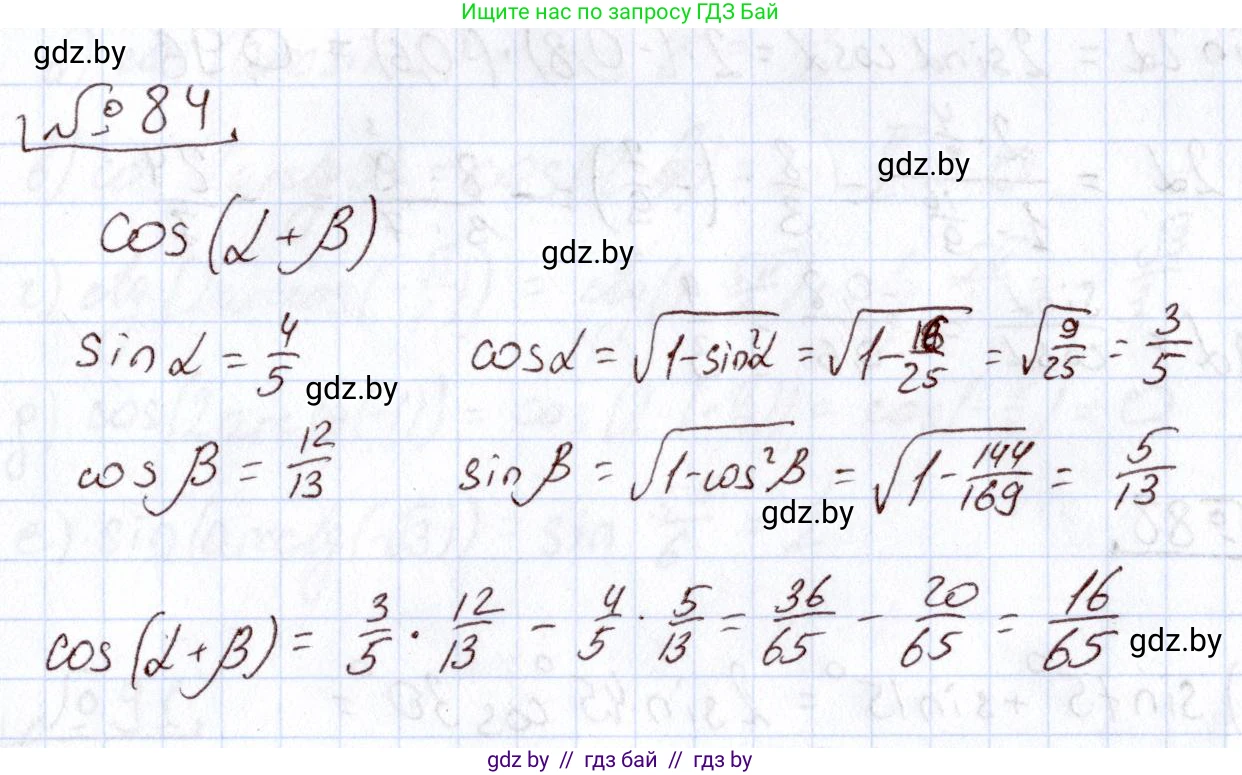 Ищите нас по запросу ГДЗ Бай
gdz.by
№ 84
gdz.by
cos(α+β)
gdz.by
sin α = 4/5 cos α = √(1-sin²α) = √(1-16/25) = √(9/25) = 3/5
gdz.by
cos β = 12/13 sin β = √(1-cos²β) = √(1-144/169) = 5/13
gdz.by
cos(α+β) = 3/5 · 12/13 - 4/5 · 5/13 = 36/65 - 20/65 = 16/65
gdz.by
gdz by // гдз бай // гдз by